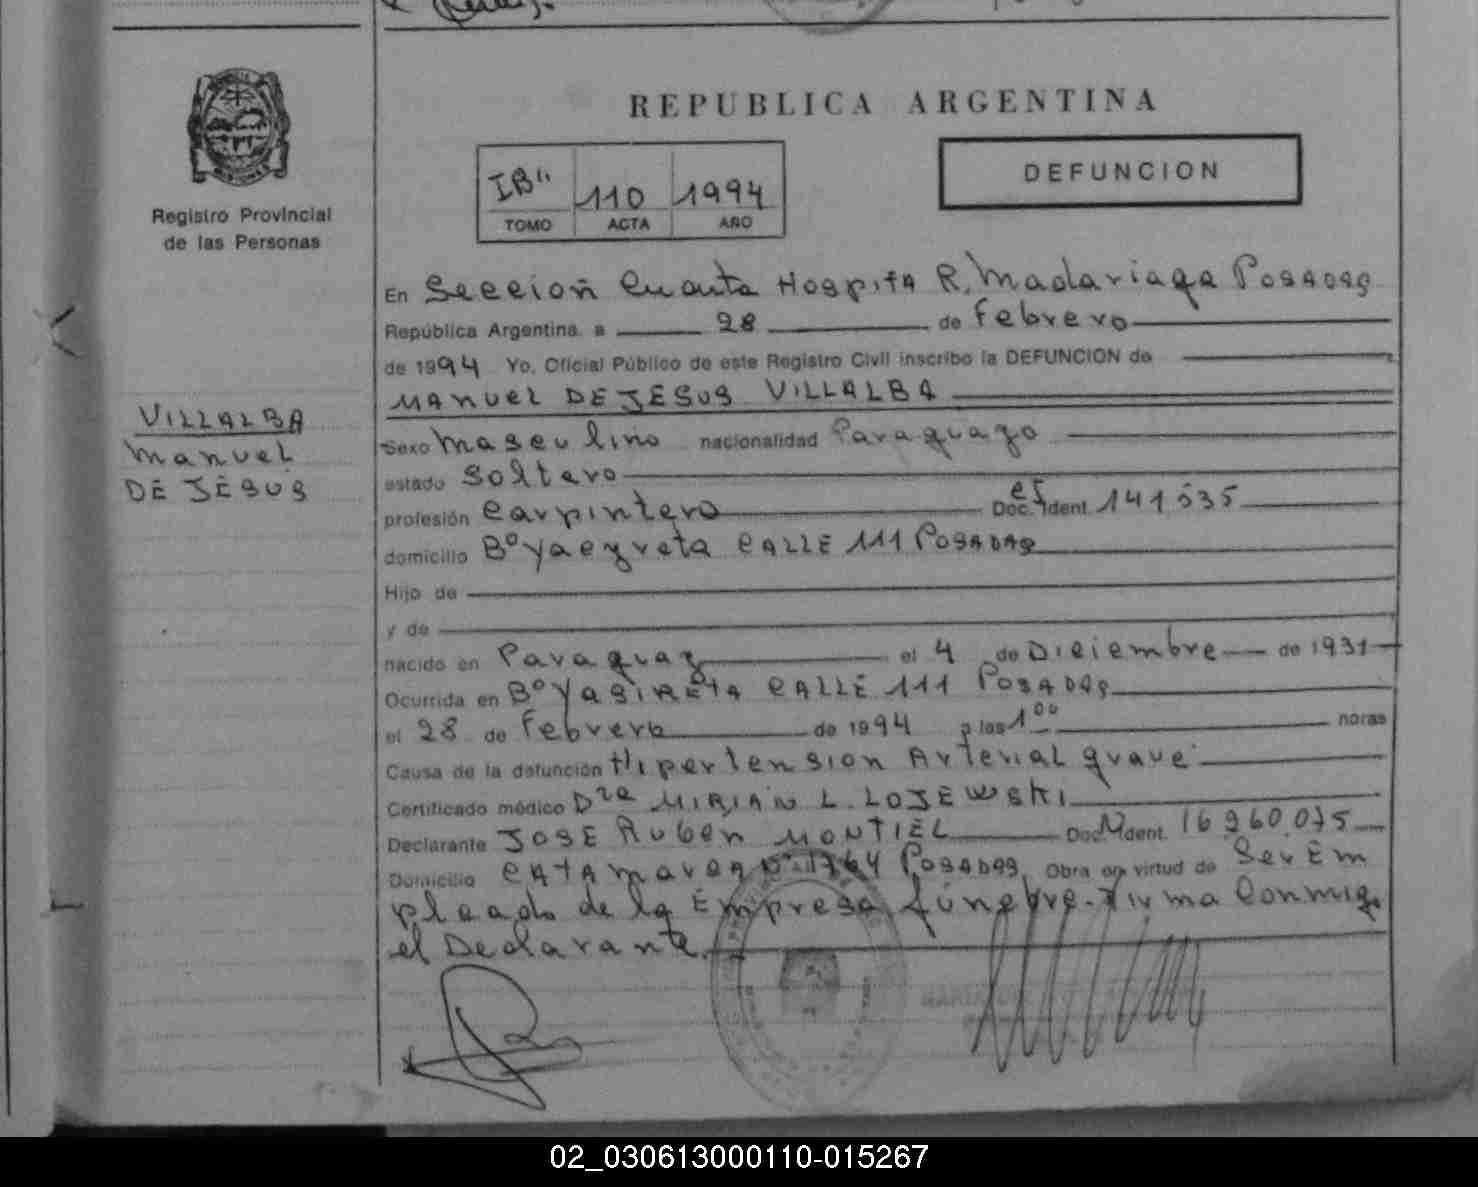 REPUBLICA ARGENTINA
DEFUNCION
IB" 110 1994
TOMO ACTA AÑO
Registro Provincial
de las Personas
En Sección Cuarta Hospita R. Madariaga POSADAS
República Argentina, a 28 de Febrero
de 1994 Yo, Oficial Público de este Registro Civil inscribo la DEFUNCION de
MANUEL DE JESUS VILLALBA
VILLALBA
Manuel
DE JESUS
Sexo Masculino nacionalidad Paraguayo
estado Soltero
profesión Carpintero Doc. Ident. 141535
domicilio Bº Yacyreta CALLE 111 POSADAS
Hijo de
y de
nacido en Paraguay el 4 de Diciembre de 1931
Ocurrida en Bº YASIRETA CALLE 111 POSADAS
el 28 de Febrero de 1994 a las 1 00 horas
Causa de la defunción Hipertension Arterial grave
Certificado médico Dra MIRIAN L. LOJEWSKI
Declarante JOSE Ruben MONTIEL Doc. N Ident. 16.960.075
Domicilio CATAMARCA Nº 1764 POSADAS, Obra en virtud de Ser Em
pleado de la Empresa fúnebre. Firma Conmigo
el Declarante
02_030613000110-015267